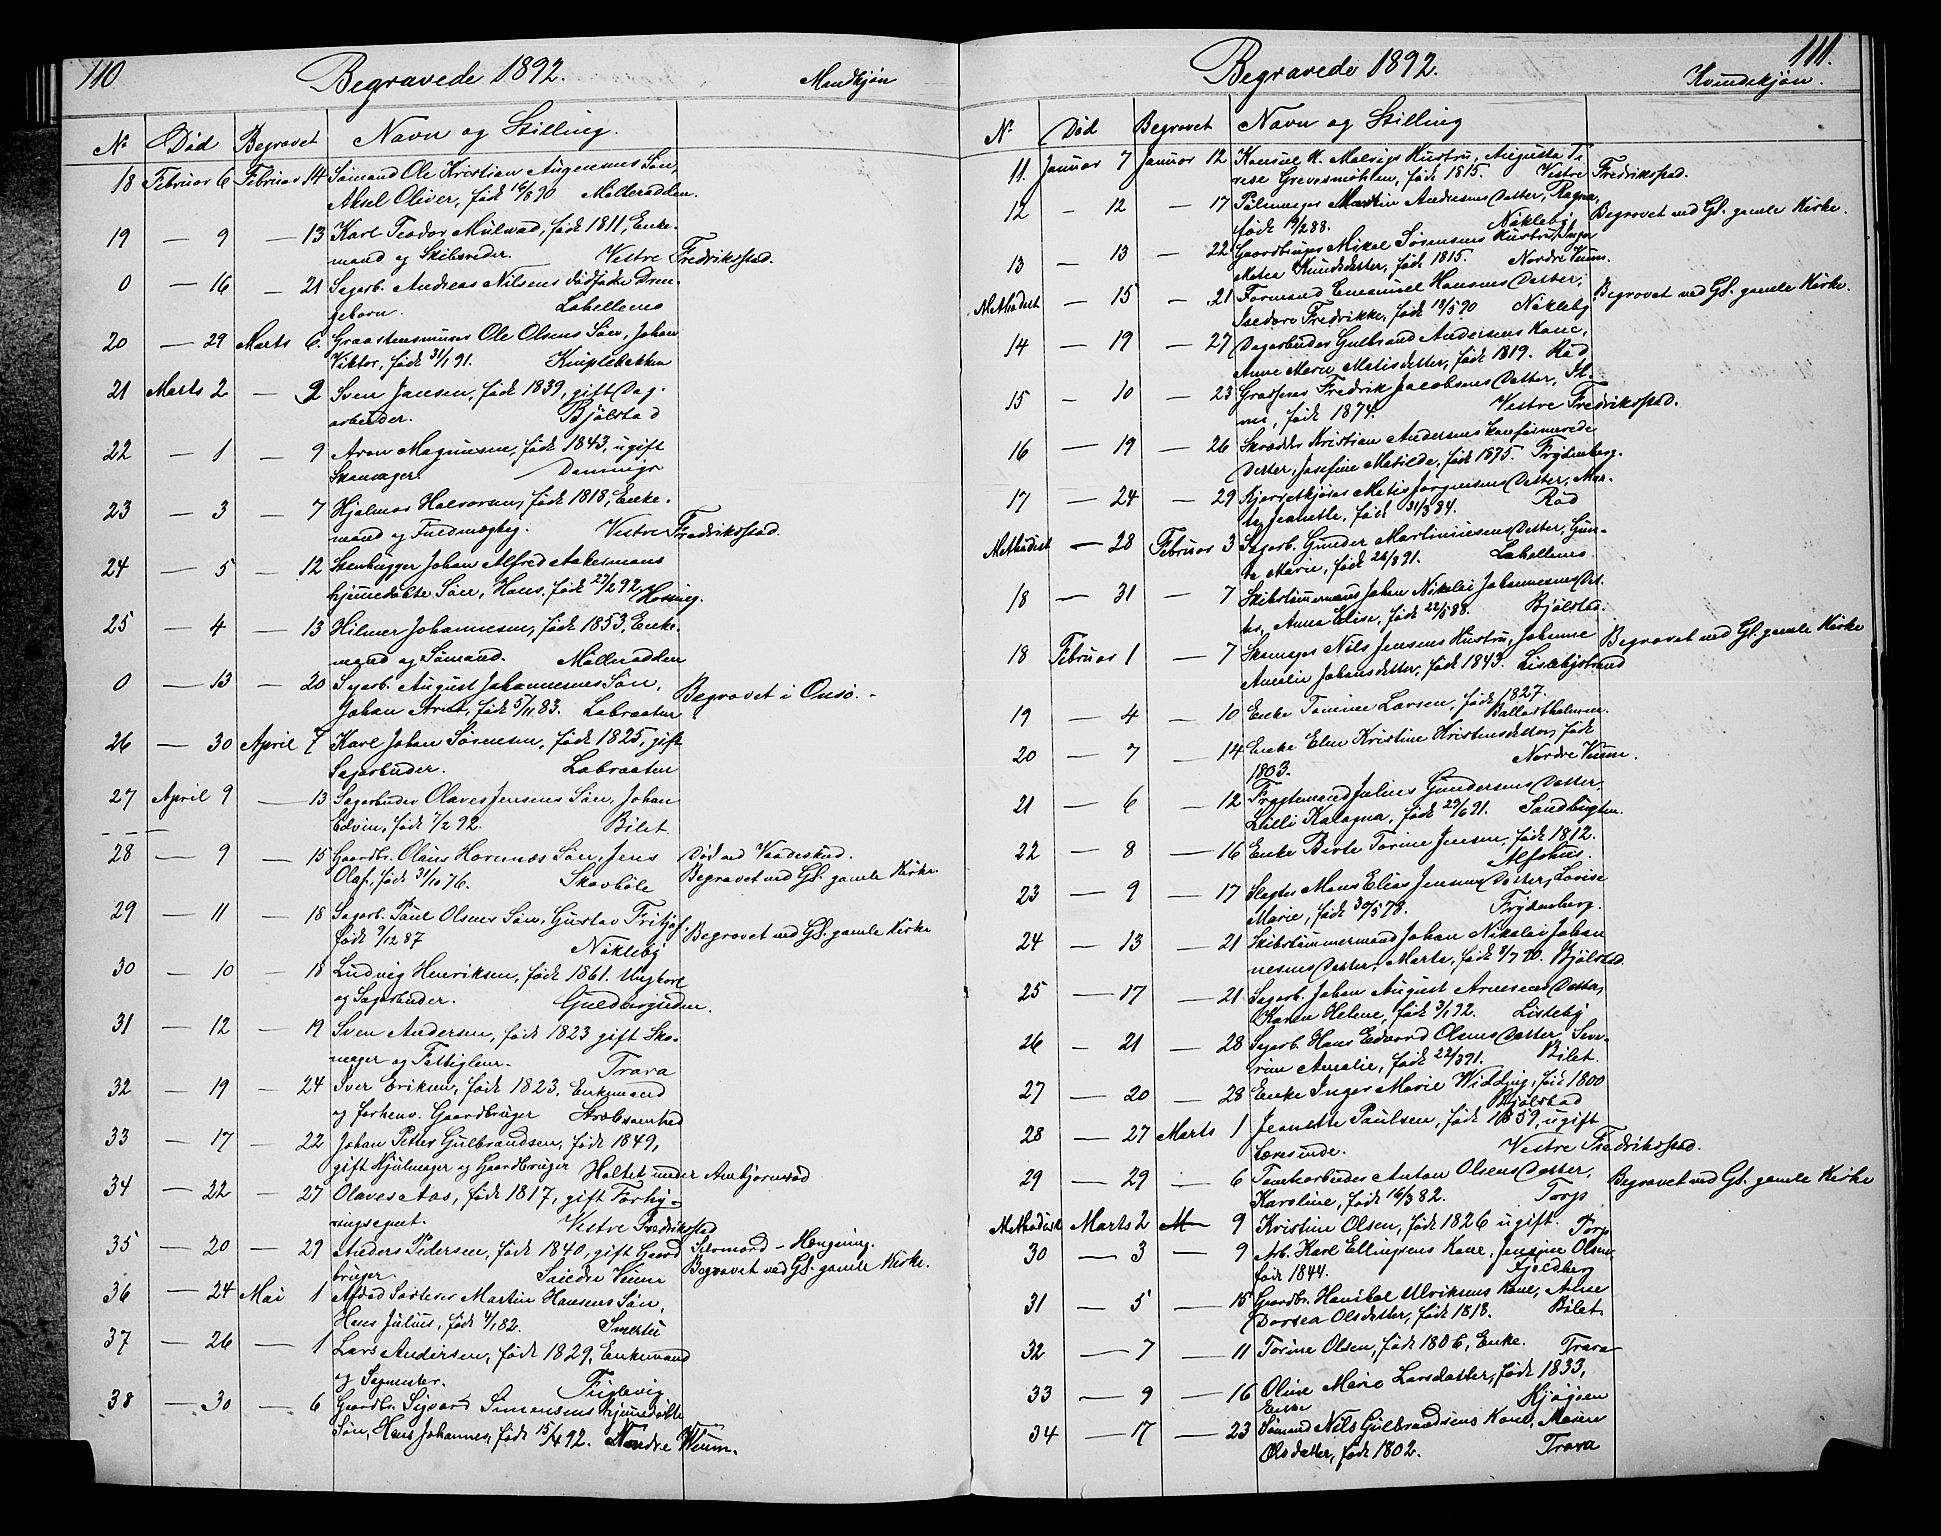 110
Begravede 1892.
Mandkjøn
No Død Begravet Navn og Stilling.
18 Februar 6 Februar 14 Sømand Ole Kristian Augensens Søn,
Aksel Oliver, født 16/8 90 Mølleradden.
19 — 9 — 13 Karl Teodor Mulvad, født 1811, Enke-
mand og Skibsreder. Vestre Fredriksstad.
0 — 16 — 21 Sagarb. Andreas Nilsens dødfødte Dren-
gebarn. Labellens
20 — 29 Marts 6. Graastensmurer Ole Olsens Søn, Johan
Viktor, født 31/1 91. Kniplebakken
21 Marts 2 — 9 Sven Jansen, født 1839, gift Dag-
arbeider. Bjølstad
22 — 1 — 9 Aron Magnusen, født 1843, ugift
Skomager.
23 — 3 — 7 Hjalmar Halvorsen, født 1818, Enke-
mand og Fuldmægtig. Vestre Fredriksstad.
24 — 5 — 12 Stenhugger Johan Alfred Aakermans
hjemmedøbte Søn, Hans, født 27/2 92.
25 — 4 — 13 Hilmer Johannesen, født 1853, Enke-
mand og Sømand. Mølleradden
0 — 13 — 20 Sagarb. August Johannesens Søn,
Johan Arnt, født 5/11 83. Labraaten Begravet i Onsø.
26 — 30 April 7 Karl Johan Sørensen, født 1825, gift
Sagarbeider. Labraaten
27 April 9 — 13 Sagarbeider Olaves Jensens Søn, Johan
Edvin, født 7/2 92. Bilet
28 — 9 — 15 Gaardbr. Olaus Havnnæs Søn, Jens Død ved Vaadeskud.
Olaf, født 31/10 76. Skovbøle Begravet ved Gl. gamle Kirke.
29 — 11 — 18 Sagarb. Paul Olsens Søn, Gustav Fritjof,
født 9/12 87 Nøkleby Begravet ved Gl. gamle Kirke
30 — 10 — 18 Ludvig Henriksen, født 1861. Ungkarl
og Sagarbeider. Guldbergsiden.
31 — 12 — 19 Sven Andersen, født 1823 gift Sko-
mager og Fattiglem. Trara
32 — 19 — 24 Iver Eriksen, født 1823. Enkemand
og forhenv. Gaardbruger Stræbsomhed
33 — 17 — 22 Johan Petter Gulbrandsen, født 1849,
gift Hjulmager og Gaardbruger Holtet under Ambjørnrød
34 — 22 — 27 Olaves Aas, født 1817, gift Forhy-
ringsagent. Vestre Fredriksstad
35 — 20 — 29 Anders Pedersen, født 1840, gift Gaard Selvmord — Hængning.
bruger. Søndre Veum Begravet ved Gl. gamle Kirke.
36 — 24 Mai 1 Afdød Sorterer Martin Hansens Søn,
Hans Julius, født 4/1 82. Smertu
37 — 26 — 1 Lars Andersen, født 1829, Enkemand
og Sagmester. Fuglevig
38 — 30 — 6 Gaardbr. Sigvard Simensens hjemmedøbte
Søn, Hans Johannes, født 15/4 92. Nordre Veum.
111.
Begravede 1892.
Kvindekjøn.
No Død Begravet Navn og Stilling
11. Januar 7 Januar 12 Konsul H. Malvigs Hustru, Augusta Te-
rese Grevesmøhlen, født 1815. Vestre Fredriksstad.
12 — 12 — 17 Pølmager Martin Andresens Datter, Ragna
født 19/2 88. Nøkleby Begravet ved Gl. gamle Kirke.
13 — 13 — 22 Gaardbruger Mikal Sørensens Hustru, Inger
Matea Knudsdatter, født 1815. Nordre Veum.
Methodist — 15 — 21 Formand Emanuel Hansens Datter,
Isedora Fredrikke, født 18/5 90 Nøkleby Begravet ved Gl. gamle Kirke.
14 — 19 — 27 Dagarbeider Gulbrand Andersens Kone,
Anne Marie Matisdatter, født 1819. Rød
15 — 10 — 23 Grosserer Fredrik Jacobsens Datter,
født 1874. Vestre Fredriksstad.
16 — 19 — 26 Skrædder Kristian Andersens konfirmerede
Datter, Josefine Matilde, født 1875. Frydenberg.
17 — 24 — 29 Kjørretkjører Matis Jørgensens Datter, Mar-
ta Jeanette, født 31/3 84. Rød
Methodist — 28 Februar 3 Sagarb. Gunder Martiniusens Datter, Gun-
da Marie, født 26/3 91. Labellens
18 — 31 — 7 Skibstømmermand Johan Nikolai Johannesens Dat-
ter, Anna Elise, født 22/5 88. Bjølstad.
18 Februar 1 — 7 Skomager Nils Jensens Hustru, Johanne Begravet ved Gl. gamle Kirke
Amalie Johansdatter, født 1843. Lislebystrand
19 — 4 — 10 Enke Tomine Larsen, født 1827.
Ballastholmen.
20 — 7 — 14 Enke Elen Kristine Kristensdatter, født
1803. Nordre Veum.
21 — 6 — 12 Fragtemand Julius Gundersens Datter,
Lilli Kalagna, født 29/6 91. Sandbugten
22 — 8 — 16 Enke Berte Torine Jensen, født 1812.
Alfshus.
23 — 9 — 17 Slagter Mons Elias Jensens Datter, Lovise
Marie, født 30/5 78. Frydenberg.
24 — 13 — 21 Skibstømmermand Johan Nikolai Johan
nesens Datter, Marta, født 8/7 90. Bjølstad.
25 — 17 — 21 Sagarb. Johan August Arnesens Datter,
Karen Helene, født 3/1 92. Lisleby
26 — 21 — 28 Sagarb. Hans Edvard Olsens Datter, Seve-
rine Amalie, født 22/3 91. Bilet.
27 — 20 — 28 Enke Inger Marie Widding, født 1800
Bjølstad
28 — 27 Marts 1 Jeanette Paulsen, født 1859, ugift
Lærerinde. Vestre Fredriksstad.
29 — 29 — 6 Tomtearbeider Anton Olsens Datter, Begravet ved Gl. gamle Kirke
Karoline, født 16/3 82. Torp
Methodist Marts 2 M 9 Kristine Olsen, født 1826 ugift. Torp
30 — 3 — 9 Arb. Karl Ellingsens Kone, Jensine Olsen
født 1844. Fjeldberg
31 — 5 — 15 Gaardbr. Hanibal Ulriksens Kone, Anne
Dorsea Olsdatter, født 1818. Bilet
32 — 7 — 11 Torine Olsen, født 1806, Enke. Trara
33 — 9 — 16 Oline Marie Larsdatter, født 1833,
Enke
34 — 17 — 23 Sømand Nils Gulbrandsens Kone, Maren
Olsdatter, født 1802. Trara